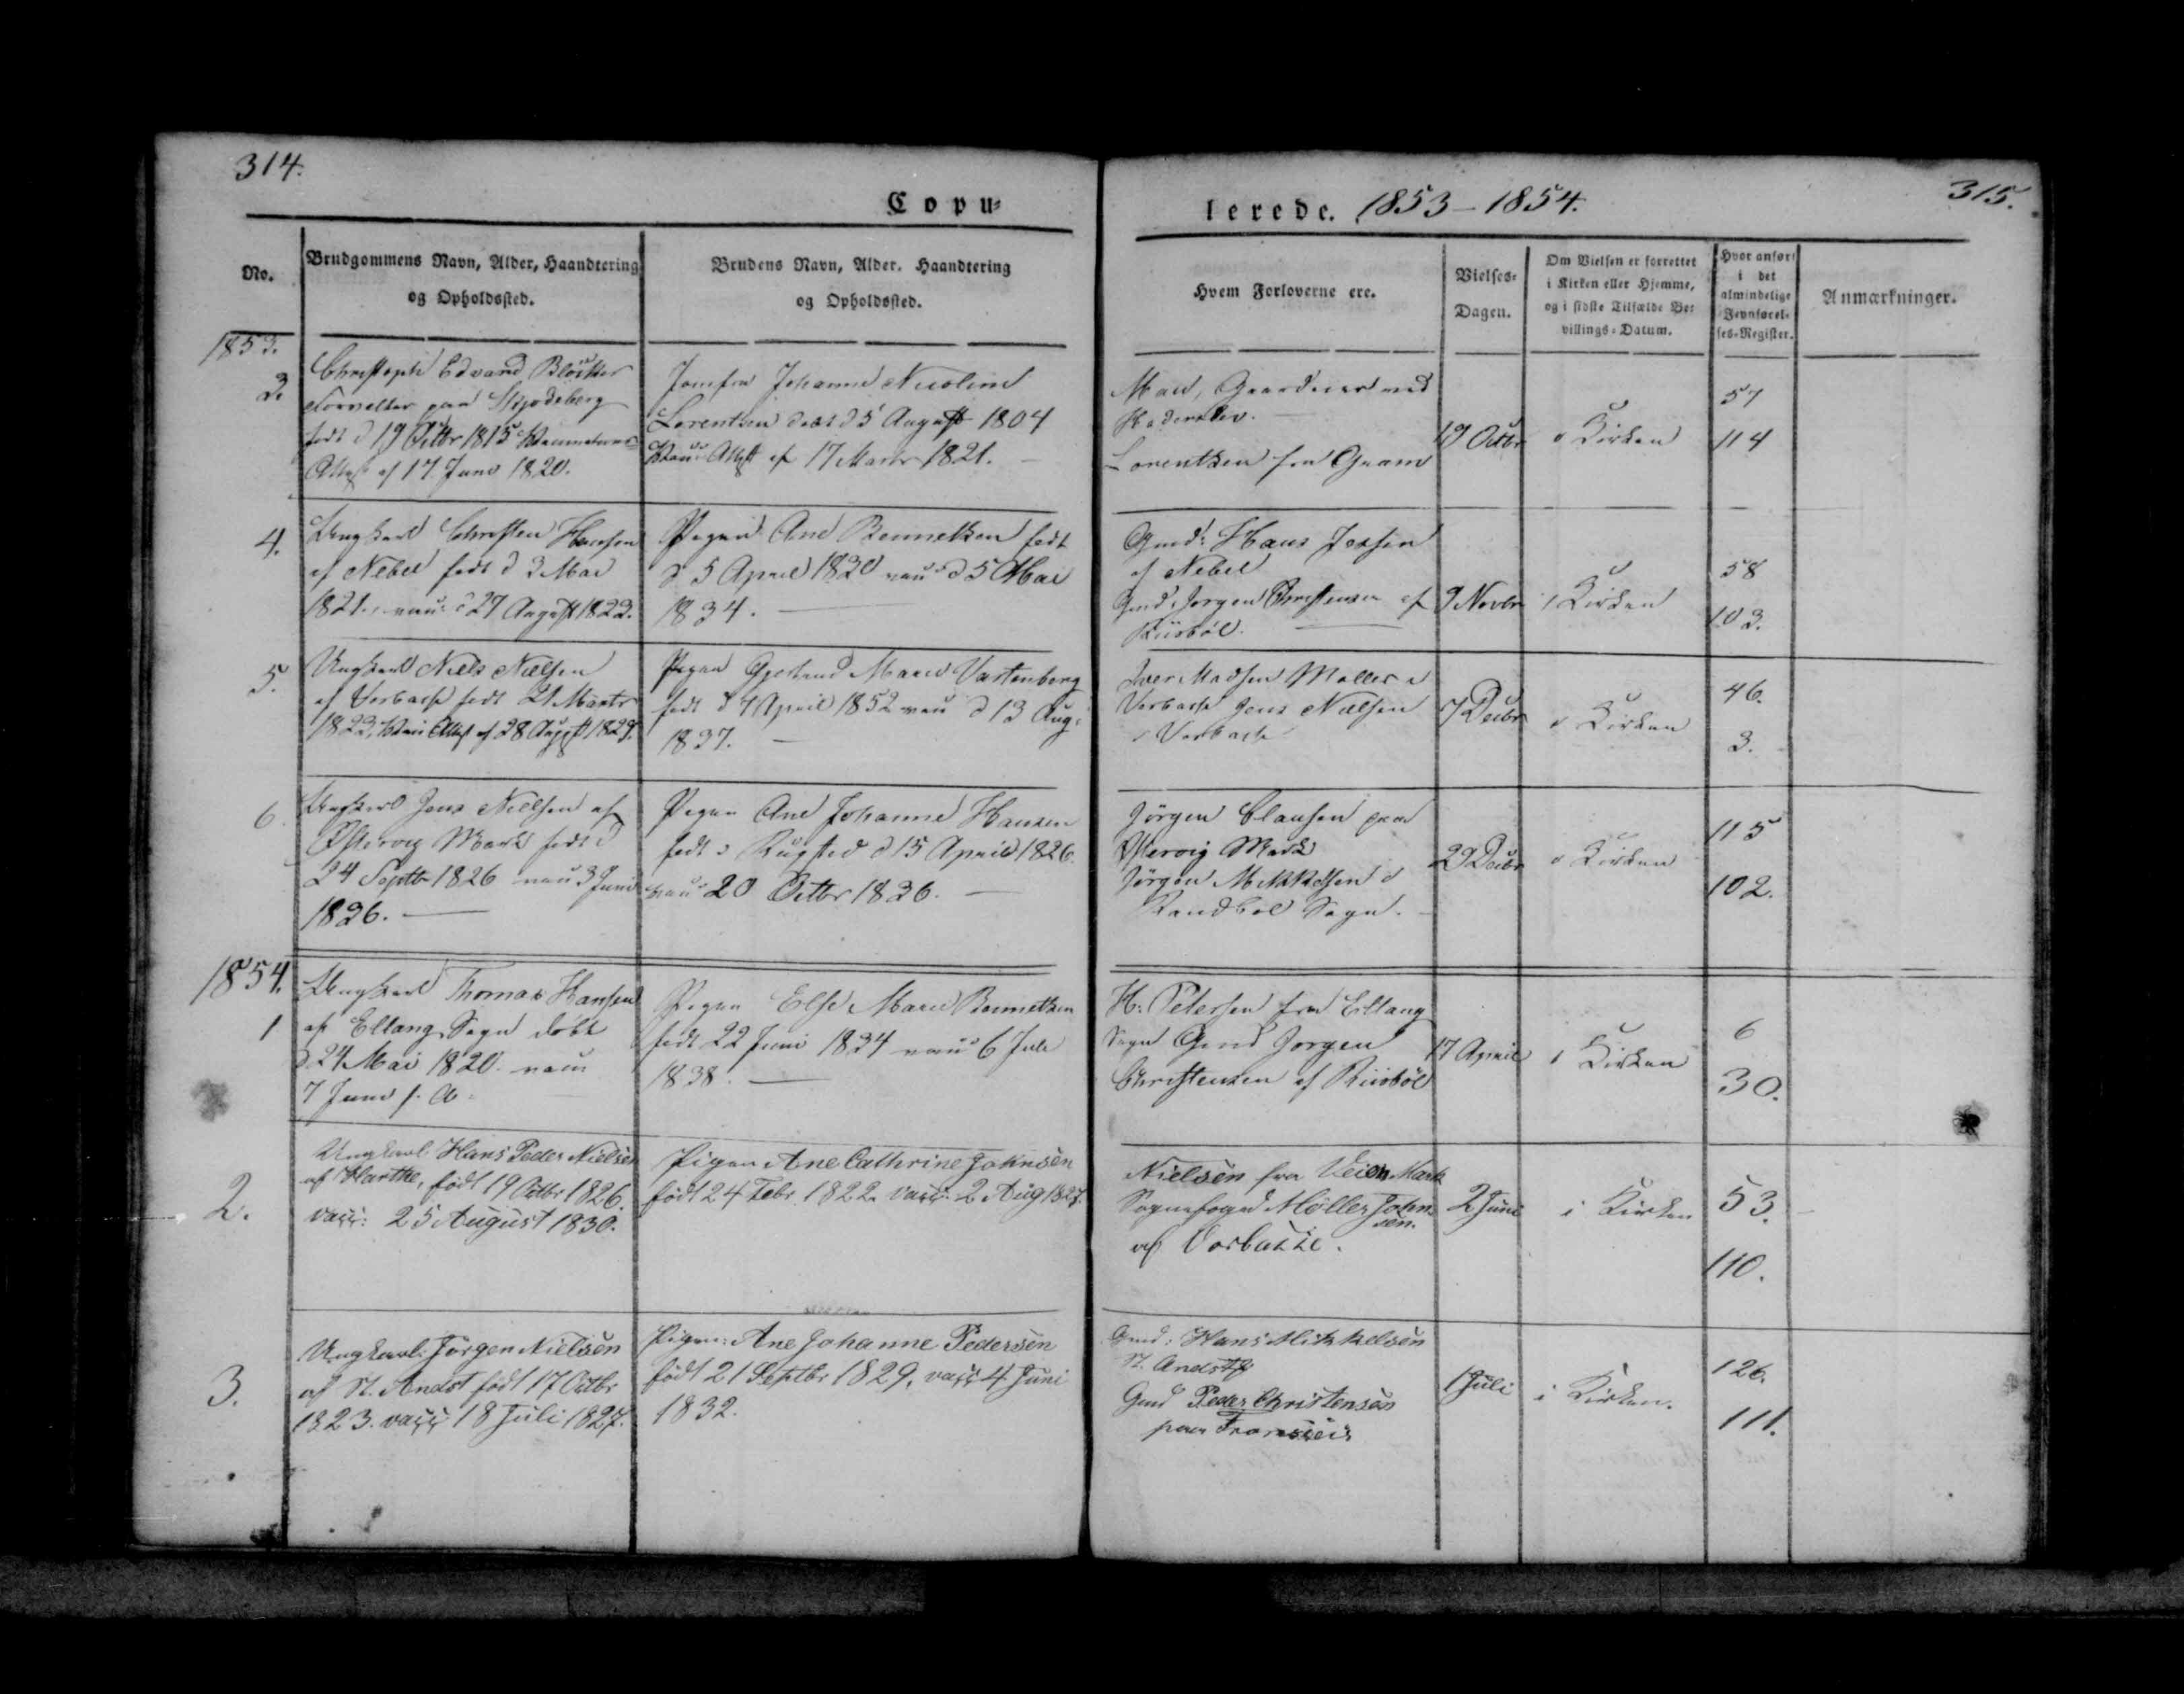 314.
Copu-
No.
Brudgommens Navn, Alder, Haandtering
og Opholdssted.
Brudens Navn, Alder. Haandtering
og Opholdssted.
1853.
3.
Christoph Edvard
født d 19 Octbr 1815
Attest af 17 Juni 1820.
Jomfru Johanne Nicoline
Lorentzen d 5 August 1804
Attest af 17 Marts 1821.
4.
Ungkarl Christen Hansen
af Nebel født d 3 Mai
1821. vacc: d 27 August 1822.
Pigen Ane Bennetsen født
d 5 April 1830 vacc d 5 Mai
1834.
5.
Ungkarl Niels Nielsen
af Vorbasse født 21 Marts
1823, Attest af 28 August 1829.
Pigen Gjertrud Marie Vartenberg
født d 4 April 1832 vacc d 13 Aug:
1837.
6.
Ungkarl Jens Nielsen af
Østervig Mark født d
24 Septb 1826 vacc 3 Juni
1836.
Pigen Ane Johanne Hansen
født d 15 April 1826
vacc 20 Octbr 1836.
1854.
1
Ungkarl Thomas Hansen
af Eltang Sogn døbt
d. 24 Mai 1820. vacc
7 Juni s. A.
Pigen Else Marie Bennetsen
født 22 Juni 1834 vacc 6 Juli
1838.
2.
Ungkarl Hans Peder Nielsen
af Harthe, født 19 Octbr 1826.
vacc: 25 August 1830.
Pigen Ane Cathrine Johnsen
født 24 Febr 1822 vacc: 2 Aug 1827.
3.
Ungkarl: Jörgen Nielsen
af St. Andst født 17 Octbr
1823. vacc 18 Juli 1827.
Pigen: Ane Johanne Pedersen
født 21 Septbr 1829, vacc 4 Juni
1832.
lerede. 1853 - 1854.
315.
Hvem Forloverne ere.
Vielses-
Dagen.
Om Vielsen er forrettet
i Kirken eller Hjemme,
og i sidste Tilfælde Be-
villings-Datum.
Hvor anført
i det
almindelige
Jevnførel-
ses-Register.
Anmærkninger.
Gaardeier ved
Haderslev.
Lorentzen fra Gram
19 Octbr
i Kirken
57
114
Gmd: Hans Jessen
af Nebel
Gmd: Jørgen Christensen af
Riisbøl.
9 Novbr
i Kirken
58
103.
Iver Madsen Møller i
Vorbasse Jens Nielsen
i Vorbasse
7 Decbr
i Kirken
46.
3.
Jörgen Clausen paa
Østervig Mark
Jörgen Mikkelsen i
Randbøl Sogn.
29 Decbr
i Kirken
115
102.
H. Petersen fra Eltang
Sogn Gmd Jørgen
Christensen af Riisbøl
17 April
i Kirken
6
30.
Nielsen fra Veien Mark
Sognefoged Möller John-
sen.
af Vorbasse.
2 Juni
i Kirken
53.
110.
Gmd: Hans Mikkelsen
St. Andst
Gmd Peder Christensen
paa
1 Juli
i Kirken.
126.
111.